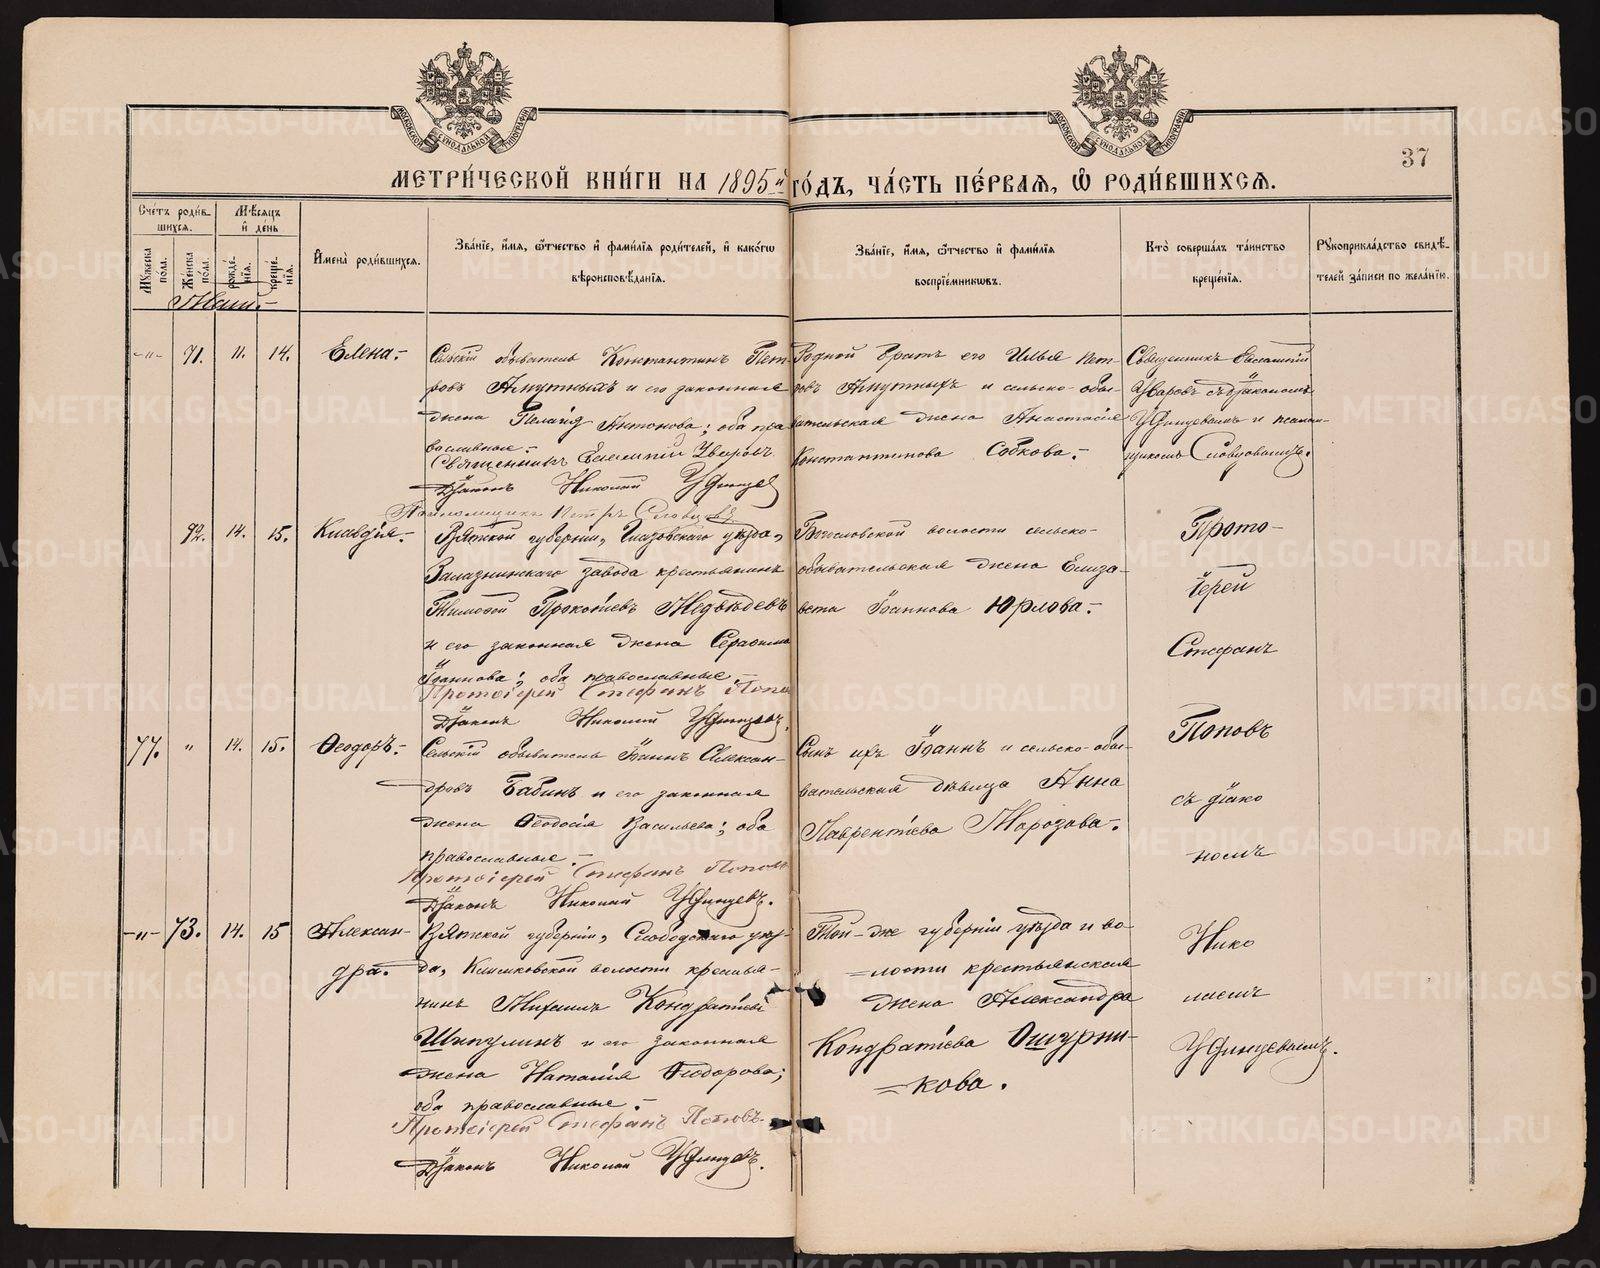 МОСКОВСКОЙ СѴНОДАЛЬНОЙ ТИПОГРАФІИ
МОСКОВСКОЙ СѴНОДАЛЬНОЙ ТИПОГРАФІИ
37
МЕТРИ́ЧЕСКОЙ КНИ́ГИ НА 1895й ГО́ДЪ, ЧА́СТЬ ПЕ́РВАЯ, Ѡ РОДИ́ВШИХСЯ.
Сче́тъ роди́вшихся.
Мѣ́сяцъ и҆ де́нь
Му́жеска по́ла.
Же́нска по́ла.
рожде́нїя.
креще́нїя.
И҆мена̀ роди́вшихся.
Зва́нїе, и҆́мя, ѻ҆́тчество и҆ фами́лїя роди́телей, и҆ како́гѡ вѣроисповѣ́данїя.
Зва́нїе, и҆́мя, ѻ҆́тчество и҆ фами́лїя воспрїе́мникѡвъ.
Кто̀ соверша́лъ та́инство креще́нїя.
Рꙋкоприкла́дство свидѣ́телей за́писи по жела́нїю.
Маій.-
-"- 71. 11. 14. Елена.-
Сельскій обыватель Константинъ Пет-
ровъ Алпутныхъ и его законная
жена Антонова; оба пра-
вославные.-
Священникъ Уваровъ
Діаконъ Николай Удинцев
Псаломщикъ Петръ Словцовъ
Родной братъ его Илья Пет-
ровъ Алпутныхъ и сельско-обы-
вательская жена Анастасія
Константинова Собкова.-
Священникъ Евлампій
Уваровъ съ діакономъ
Удинцевымъ и псалом-
щикомъ Словцовымъ.
72. 14. 15. Клавдія.-
Вятской губерніи, Глазовскаго уѣзда,
Залазнинскаго завода крестьянинъ
Тимофей Прокопіевъ Медвѣдевъ
и его законная жена Серафима
Іоаннова; оба православные.-
Протоіерей Стефанъ Попов
Діаконъ Николай Удинцевъ.
Богословской волости сельско-
обывательская жена Елиза-
вета Іоаннова Юрлова.-
Прото-
іерей
Стефанъ
Поповъ
съ діако
номъ
Нико
лаемъ
Удинцевымъ.
77. " 14. 15. Ѳеодоръ.-
Сельскій обыватель Іоаннъ Алексан-
дровъ Бабинъ и его законная
жена Ѳеодосія Васильева; оба
православные.-
Протоіерей Стефанъ Поповъ
Діаконъ Николай Удинцевъ.
Сынъ ихъ Іоаннъ и сельско-обы-
вательская дѣвица Анна
Лаврентіева Морозова.-
-"- 73. 14. 15 Алексан-
дра.
Вятской губерніи, Слободскаго уѣз-
да, волости крестья-
нинъ Михаилъ Кондратіевъ
Шипулинъ и его законная
жена Наталія Ѳеодорова;
оба православные.-
Протоіерей Стефанъ Поповъ
Діаконъ Николай Удинцевъ.
Той-же губерніи уѣзда и во-
лости крестьянская
жена Александра
Кондратіева Ошурни-
кова.
METRIKI.GASO-URAL.RU